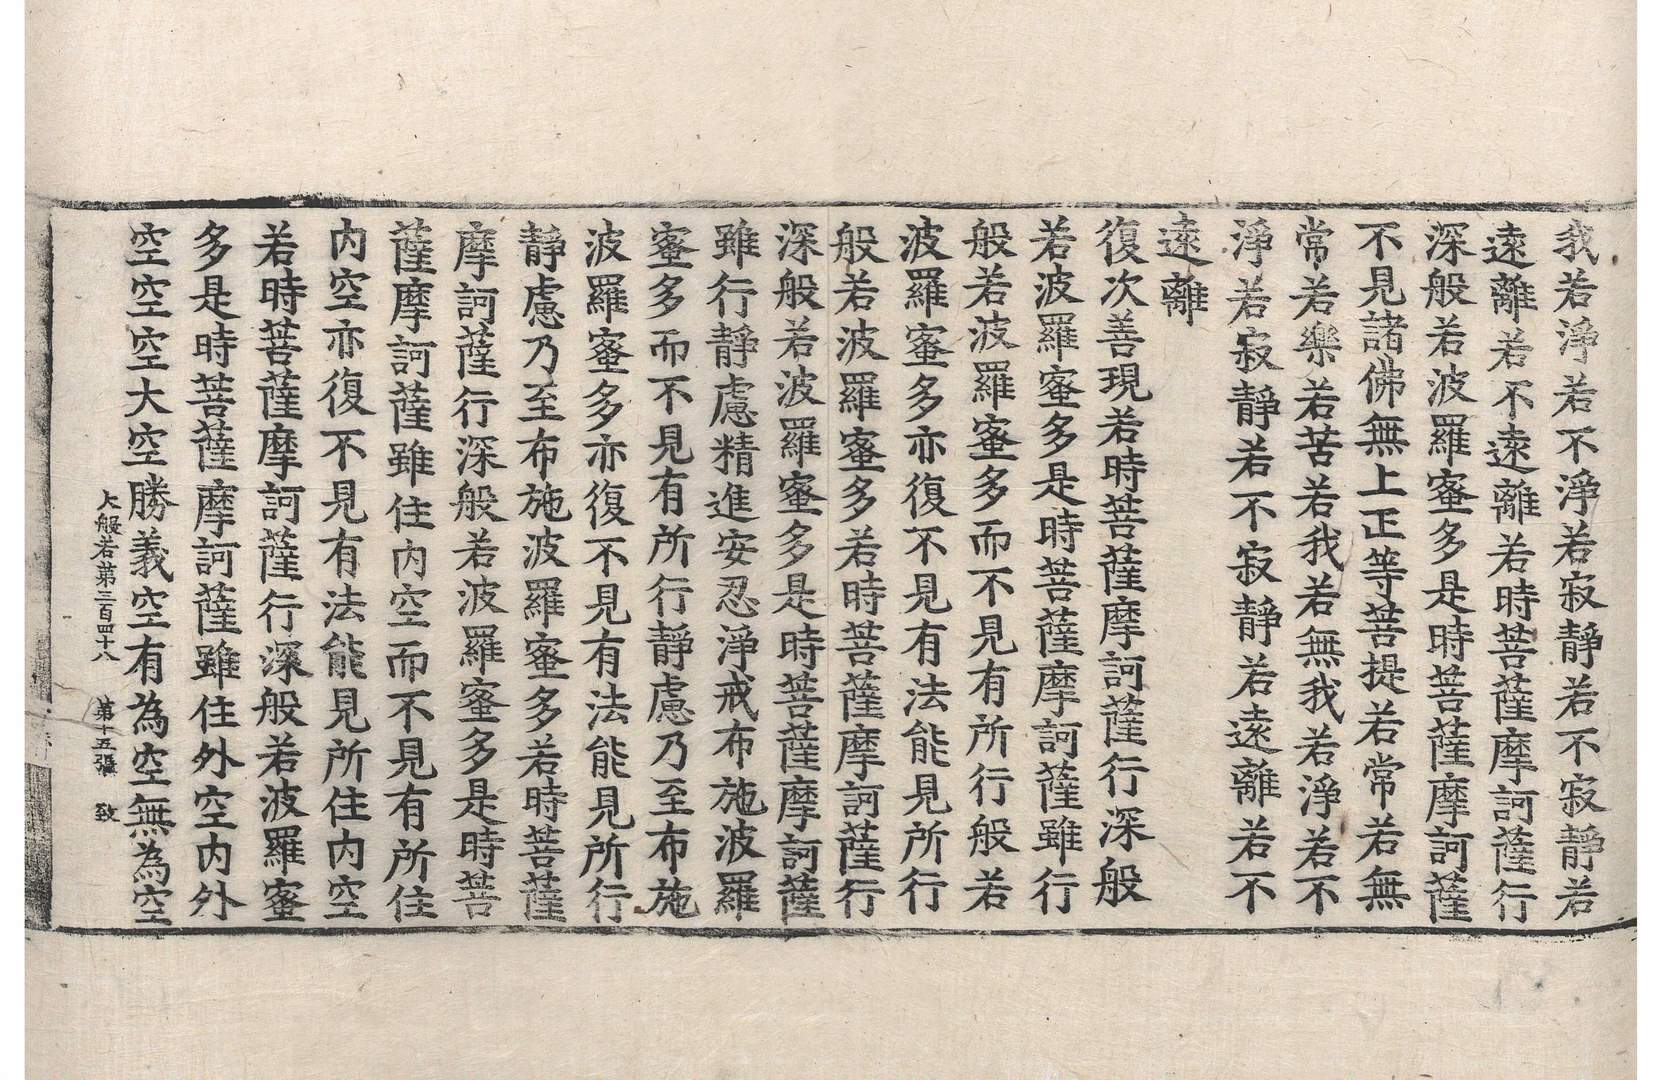 我若淨若不淨若寂靜若不寂靜若
遠離若不遠離若時菩薩摩訶薩行
深般若波羅蜜多是時菩薩摩訶薩
不見諸佛無上正等菩提若常若無
常若樂若苦若我若無我若淨若不
淨若寂靜若不寂靜若遠離若不
遠離
復次善現若時菩薩摩訶薩行深般
若波羅蜜多是時菩薩摩訶薩雖行
般若波羅蜜多而不見有所行般若
波羅蜜多亦復不見有法能見所行
般若波羅蜜多若時菩薩摩訶薩行
深般若波羅蜜多是時菩薩摩訶薩
雖行靜慮精進安忍淨戒布施波羅
蜜多而不見有所行靜慮乃至布施
波羅蜜多亦復不見有法能見所行
靜慮乃至布施波羅蜜多若時菩薩
摩訶薩行深般若波羅蜜多是時菩
薩摩訶薩雖住內空而不見有所住
內空亦復不見有法能見所住內空
若時菩薩摩訶薩行深般若波羅蜜
多是時菩薩摩訶薩雖住外空內外
空空空大空勝義空有為空無為空
大般若第三百四十八 第十五張 致